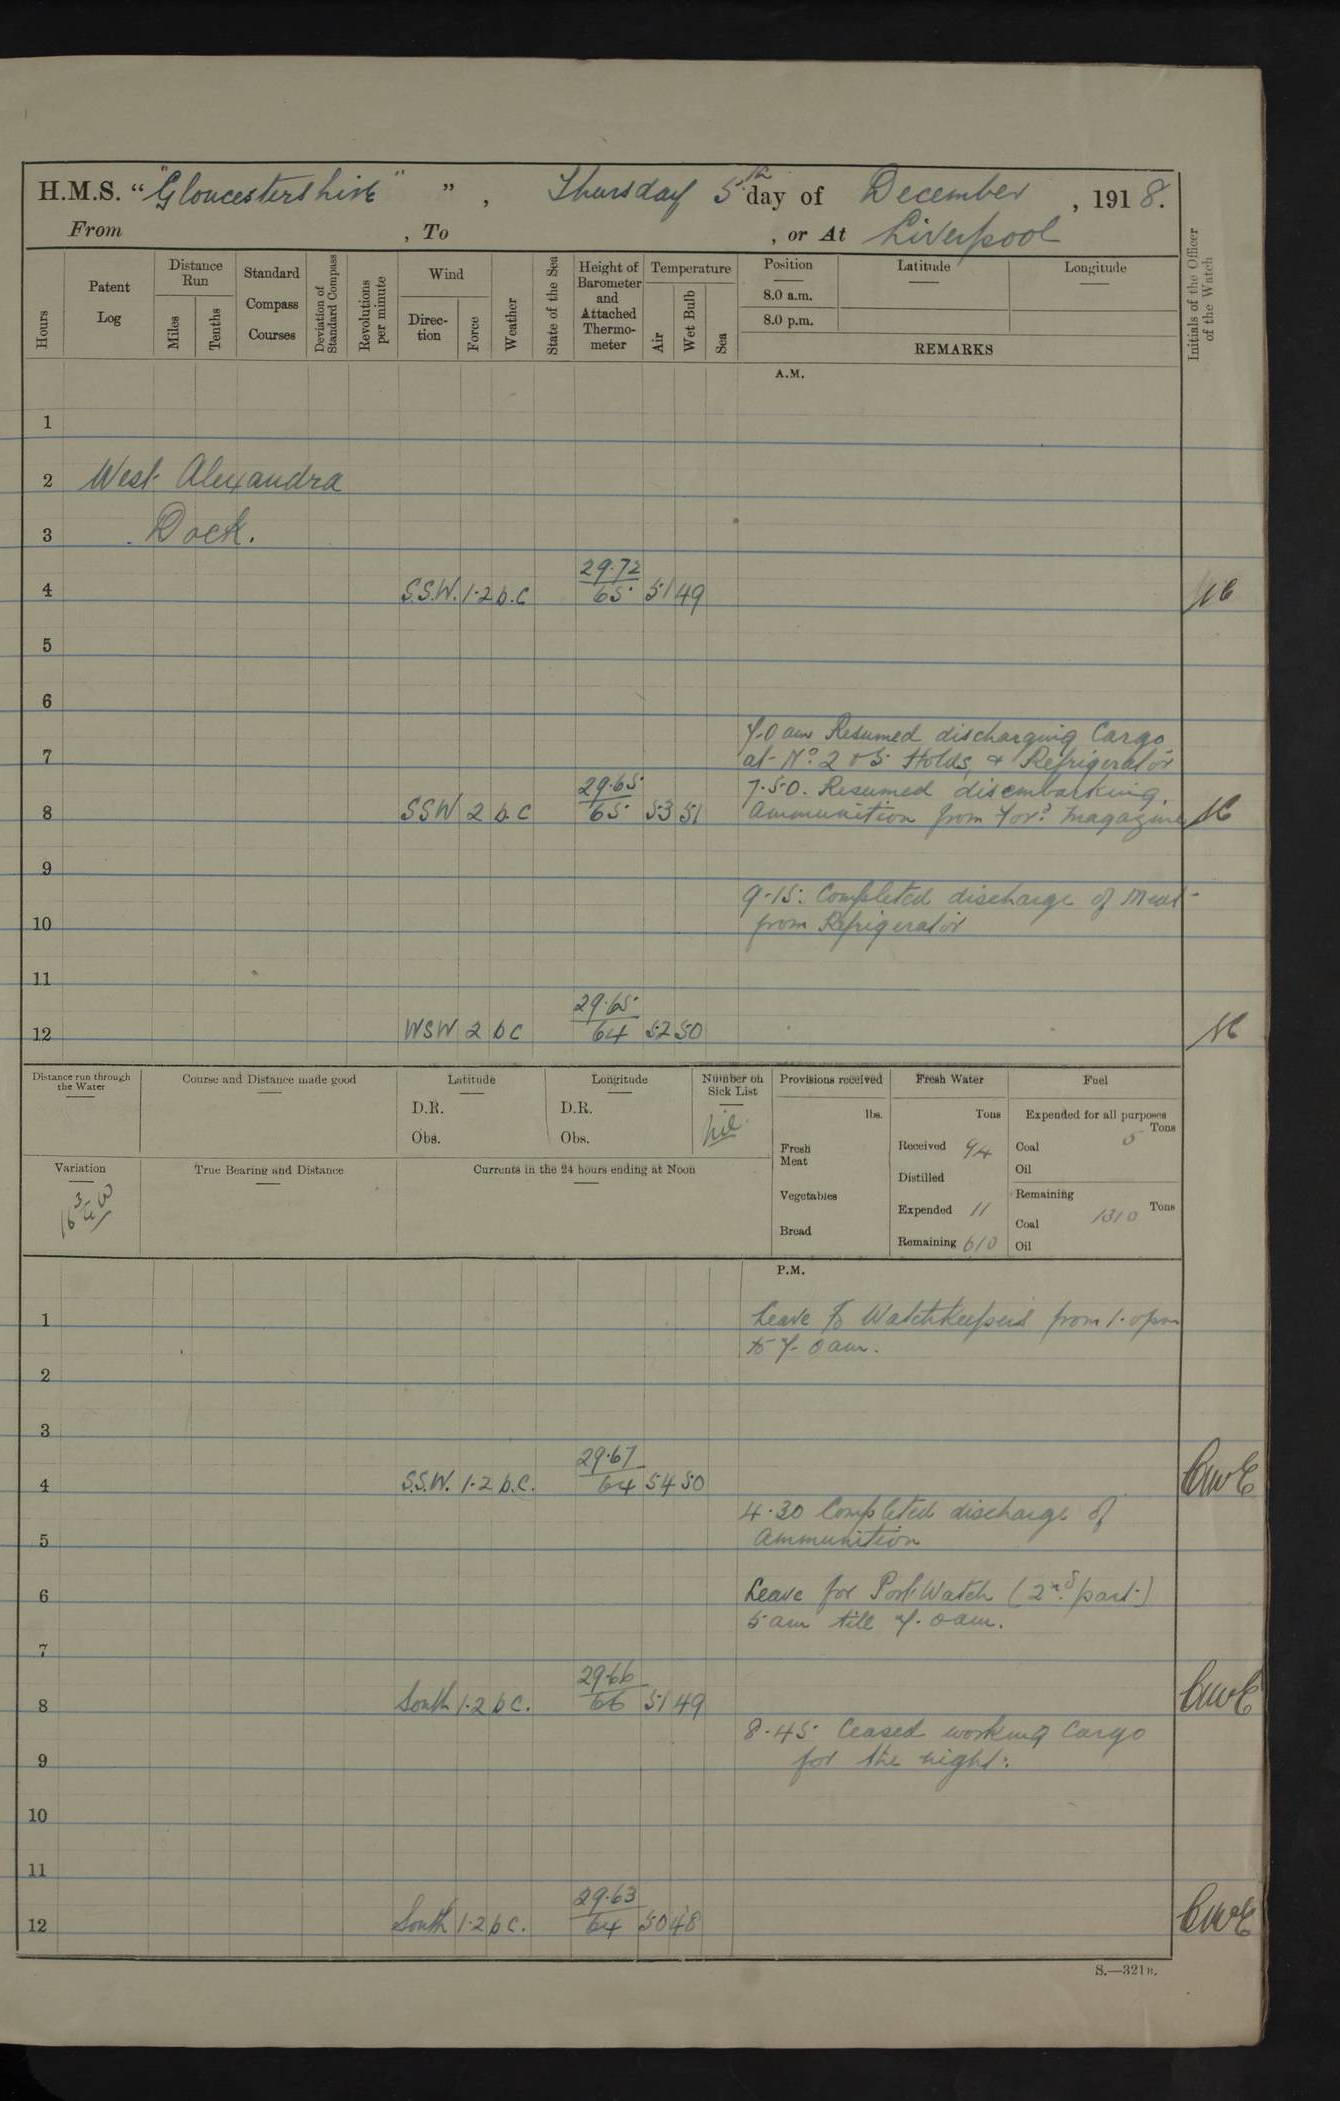 H.M.S. "Gloucestershire" ", Thursday 5th day of December, 1918.
From , To , or At Liverpool
Hours
Patent Log
Distance Run
Miles
Tenths
Standard Compass Courses
Deviation of Standard Compass
Revolutions per minute
Wind
Direction
Force
Weather
State of the Sea
Height of Barometer and Attached Thermometer
Temperature
Air
Wet Bulb
Sea
Position
8.0 a.m.
8.0 p.m.
Latitude
Longitude
REMARKS
Initials of the Officer of the Watch
A.M.
1
2 West Alexandra
3 Dock.
29.72
4 S.S.W. 1.2 b.c 65 51 49
5
6
7.0 am Resumed discharging Cargo
7 at No. 2 & 5 Holds, & Refrigerator
29.65 7.50. Resumed disembarking
8 SSW 2 b.c 65 53 51 Ammunition from Ford Magazine
9
9.15: Completed discharge of Meat
10 from Refrigerator
11
29.65
12 WSW 2 b c 64 52 50
Distance run through the Water
Course and Distance made good
Latitude
D.R.
Obs.
Longitude
D.R.
Obs.
Number on Sick List
nil
Provisions received
lbs.
Fresh Meat
Vegetables
Bread
Fresh Water
Tons
Received 94
Distilled
Expended 11
Remaining 610
Fuel
Expended for all purposes
Tons
Coal 5
Oil
Remaining
Tons
Coal 1310
Oil
Variation
16 3/4 W
True Bearing and Distance
Currents in the 24 hours ending at Noon
P.M.
1 Leave to Watchkeepers from 1.0pm
to 7.0am.
2
3
29.67
4 S.S.W. 1.2 b.c. 64 54 50
4.30 Completed discharge of
5 Ammunition
6 Leave for Port Watch (2nd part)
5 am till 7.0am.
7
29.66
8 South 1.2 b c. 66 51 49
8.45 Ceased working Cargo
9 for the night.
10
11
29.63
12 South 1.2 b c. 64 50 48
S.—321B.